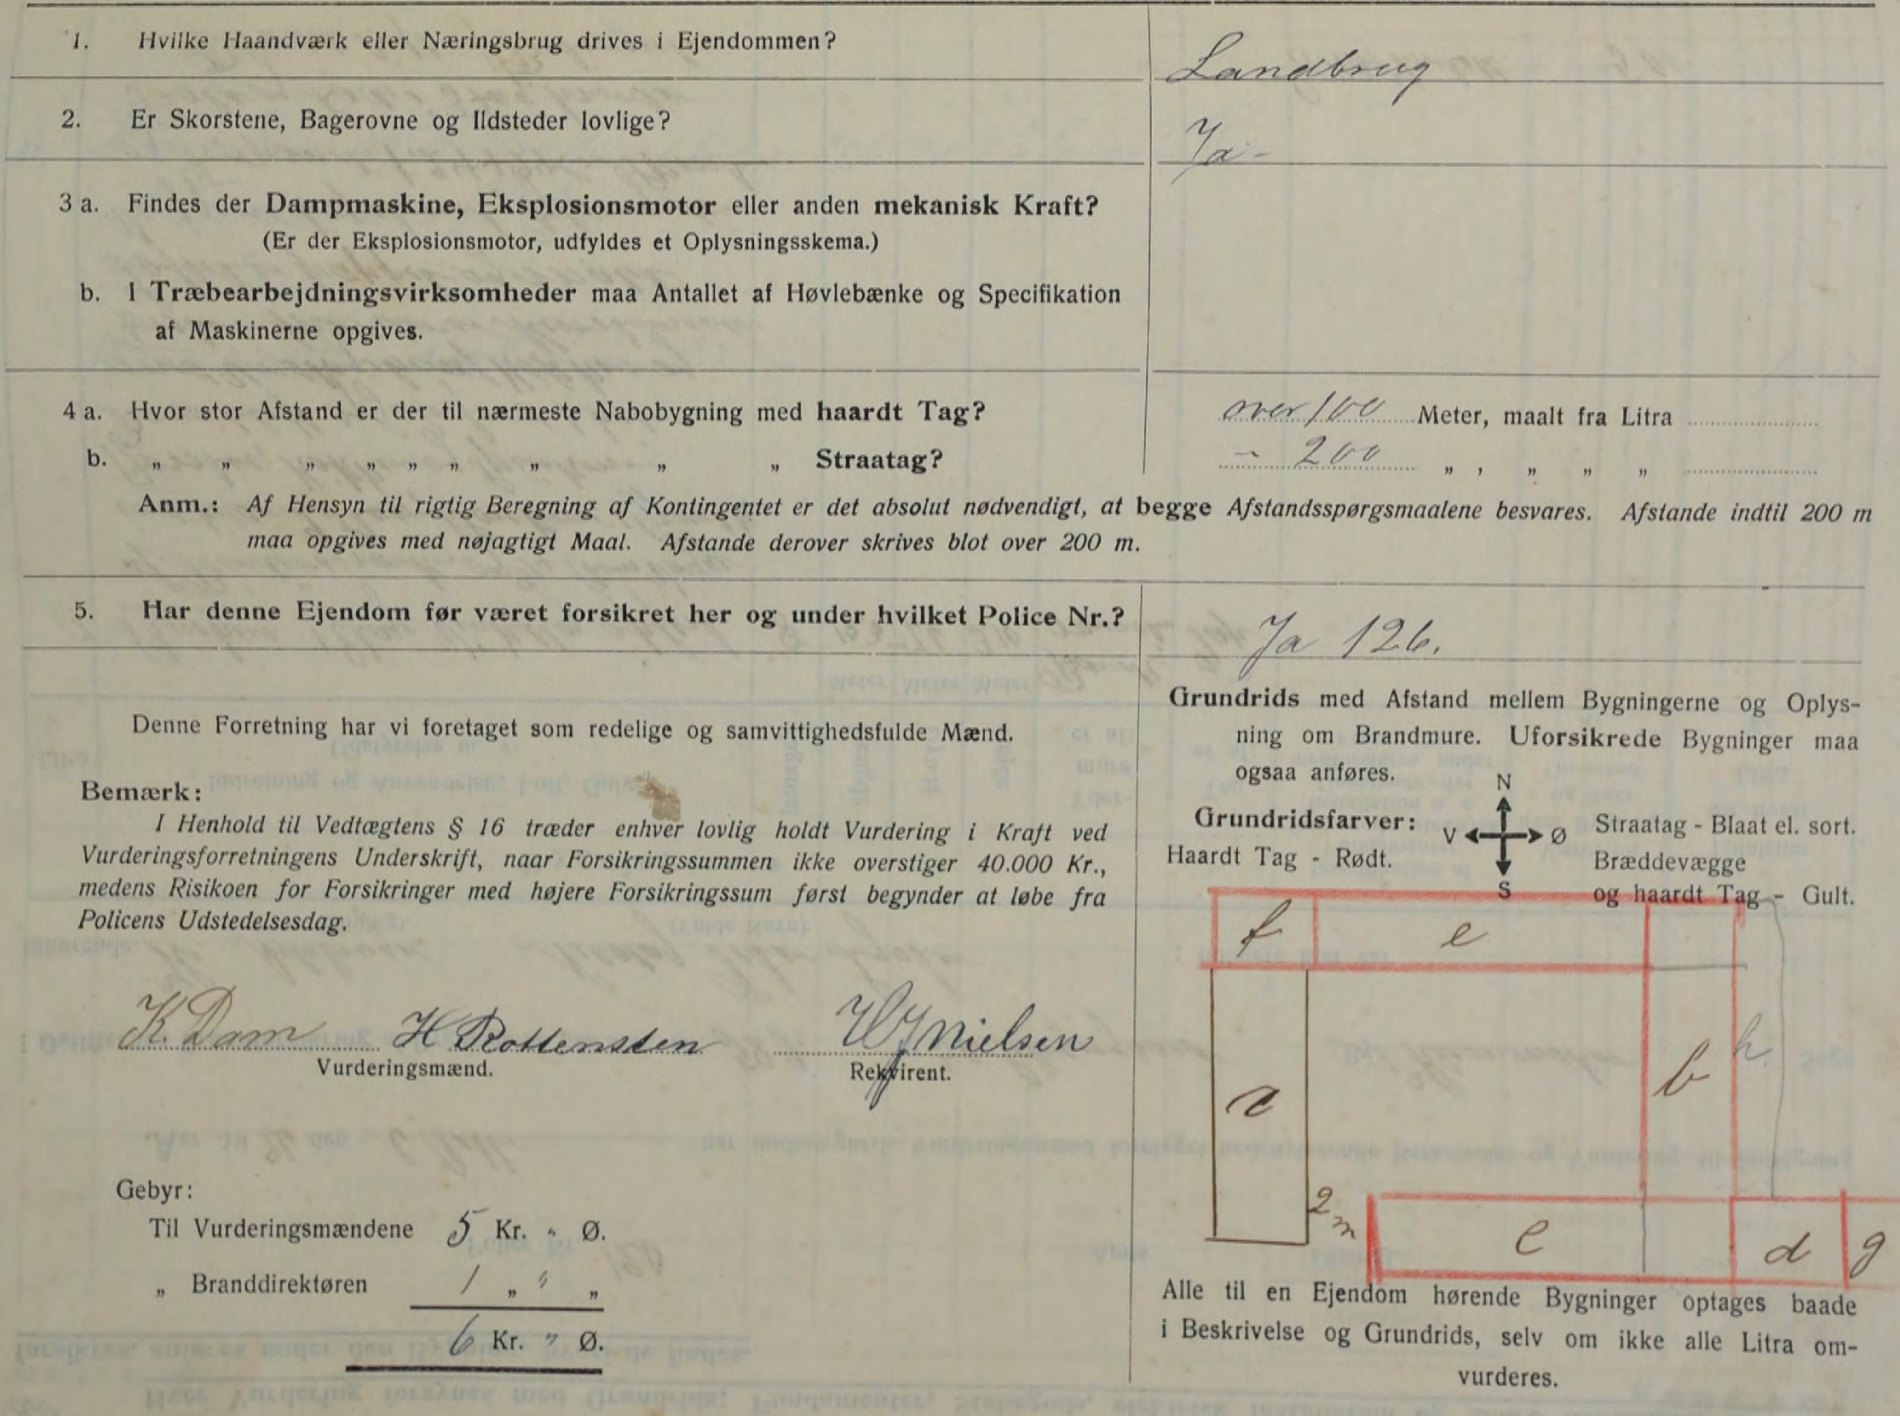 1. Hvilke Haandværk eller Næringsbrug drives i Ejendommen? Landbrug
2. Er Skorstene, Bagerovne og Ildsteder lovlige? Ja -
3 a. Findes der Dampmaskine, Eksplosionsmotor eller anden mekanisk Kraft?
(Er der Eksplosionsmotor, udfyldes et Oplysningsskema.)
b. I Træbearbejdningsvirksomheder maa Antallet af Høvlebænke og Specifikation
af Maskinerne opgives.
4 a. Hvor stor Afstand er der til nærmeste Nabobygning med haardt Tag? over 100 Meter, maalt fra Litra
b. „ „ „ „ „ „ „ „ „ Straatag? - 200 „ , „ „ „
Anm.: Af Hensyn til rigtig Beregning af Kontingentet er det absolut nødvendigt, at begge Afstandsspørgsmaalene besvares. Afstande indtil 200 m
maa opgives med nøjagtigt Maal. Afstande derover skrives blot over 200 m.
5. Har denne Ejendom før været forsikret her og under hvilket Police Nr.? Ja 126.
Denne Forretning har vi foretaget som redelige og samvittighedsfulde Mænd.
Bemærk:
I Henhold til Vedtægtens § 16 træder enhver lovlig holdt Vurdering i Kraft ved
Vurderingsforretningens Underskrift, naar Forsikringssummen ikke overstiger 40.000 Kr.,
medens Risikoen for Forsikringer med højere Forsikringssum først begynder at løbe fra
Policens Udstedelsesdag.
K. Dam H Rottensten HJ Nielsen
Vurderingsmænd. Rekvirent.
Gebyr:
Til Vurderingsmændene 5 Kr. „ Ø.
„ Branddirektøren 1 „ „ „
6 Kr. „ Ø.
Grundrids med Afstand mellem Bygningerne og Oplys-
ning om Brandmure. Uforsikrede Bygninger maa
ogsaa anføres.
N
Grundridsfarver: V Ø Straatag - Blaat el. sort.
Haardt Tag - Rødt. Bræddevægge
S og haardt Tag - Gult.
f e
h
b
a
2 m
c d g
Alle til en Ejendom hørende Bygninger optages baade
i Beskrivelse og Grundrids, selv om ikke alle Litra om-
vurderes.